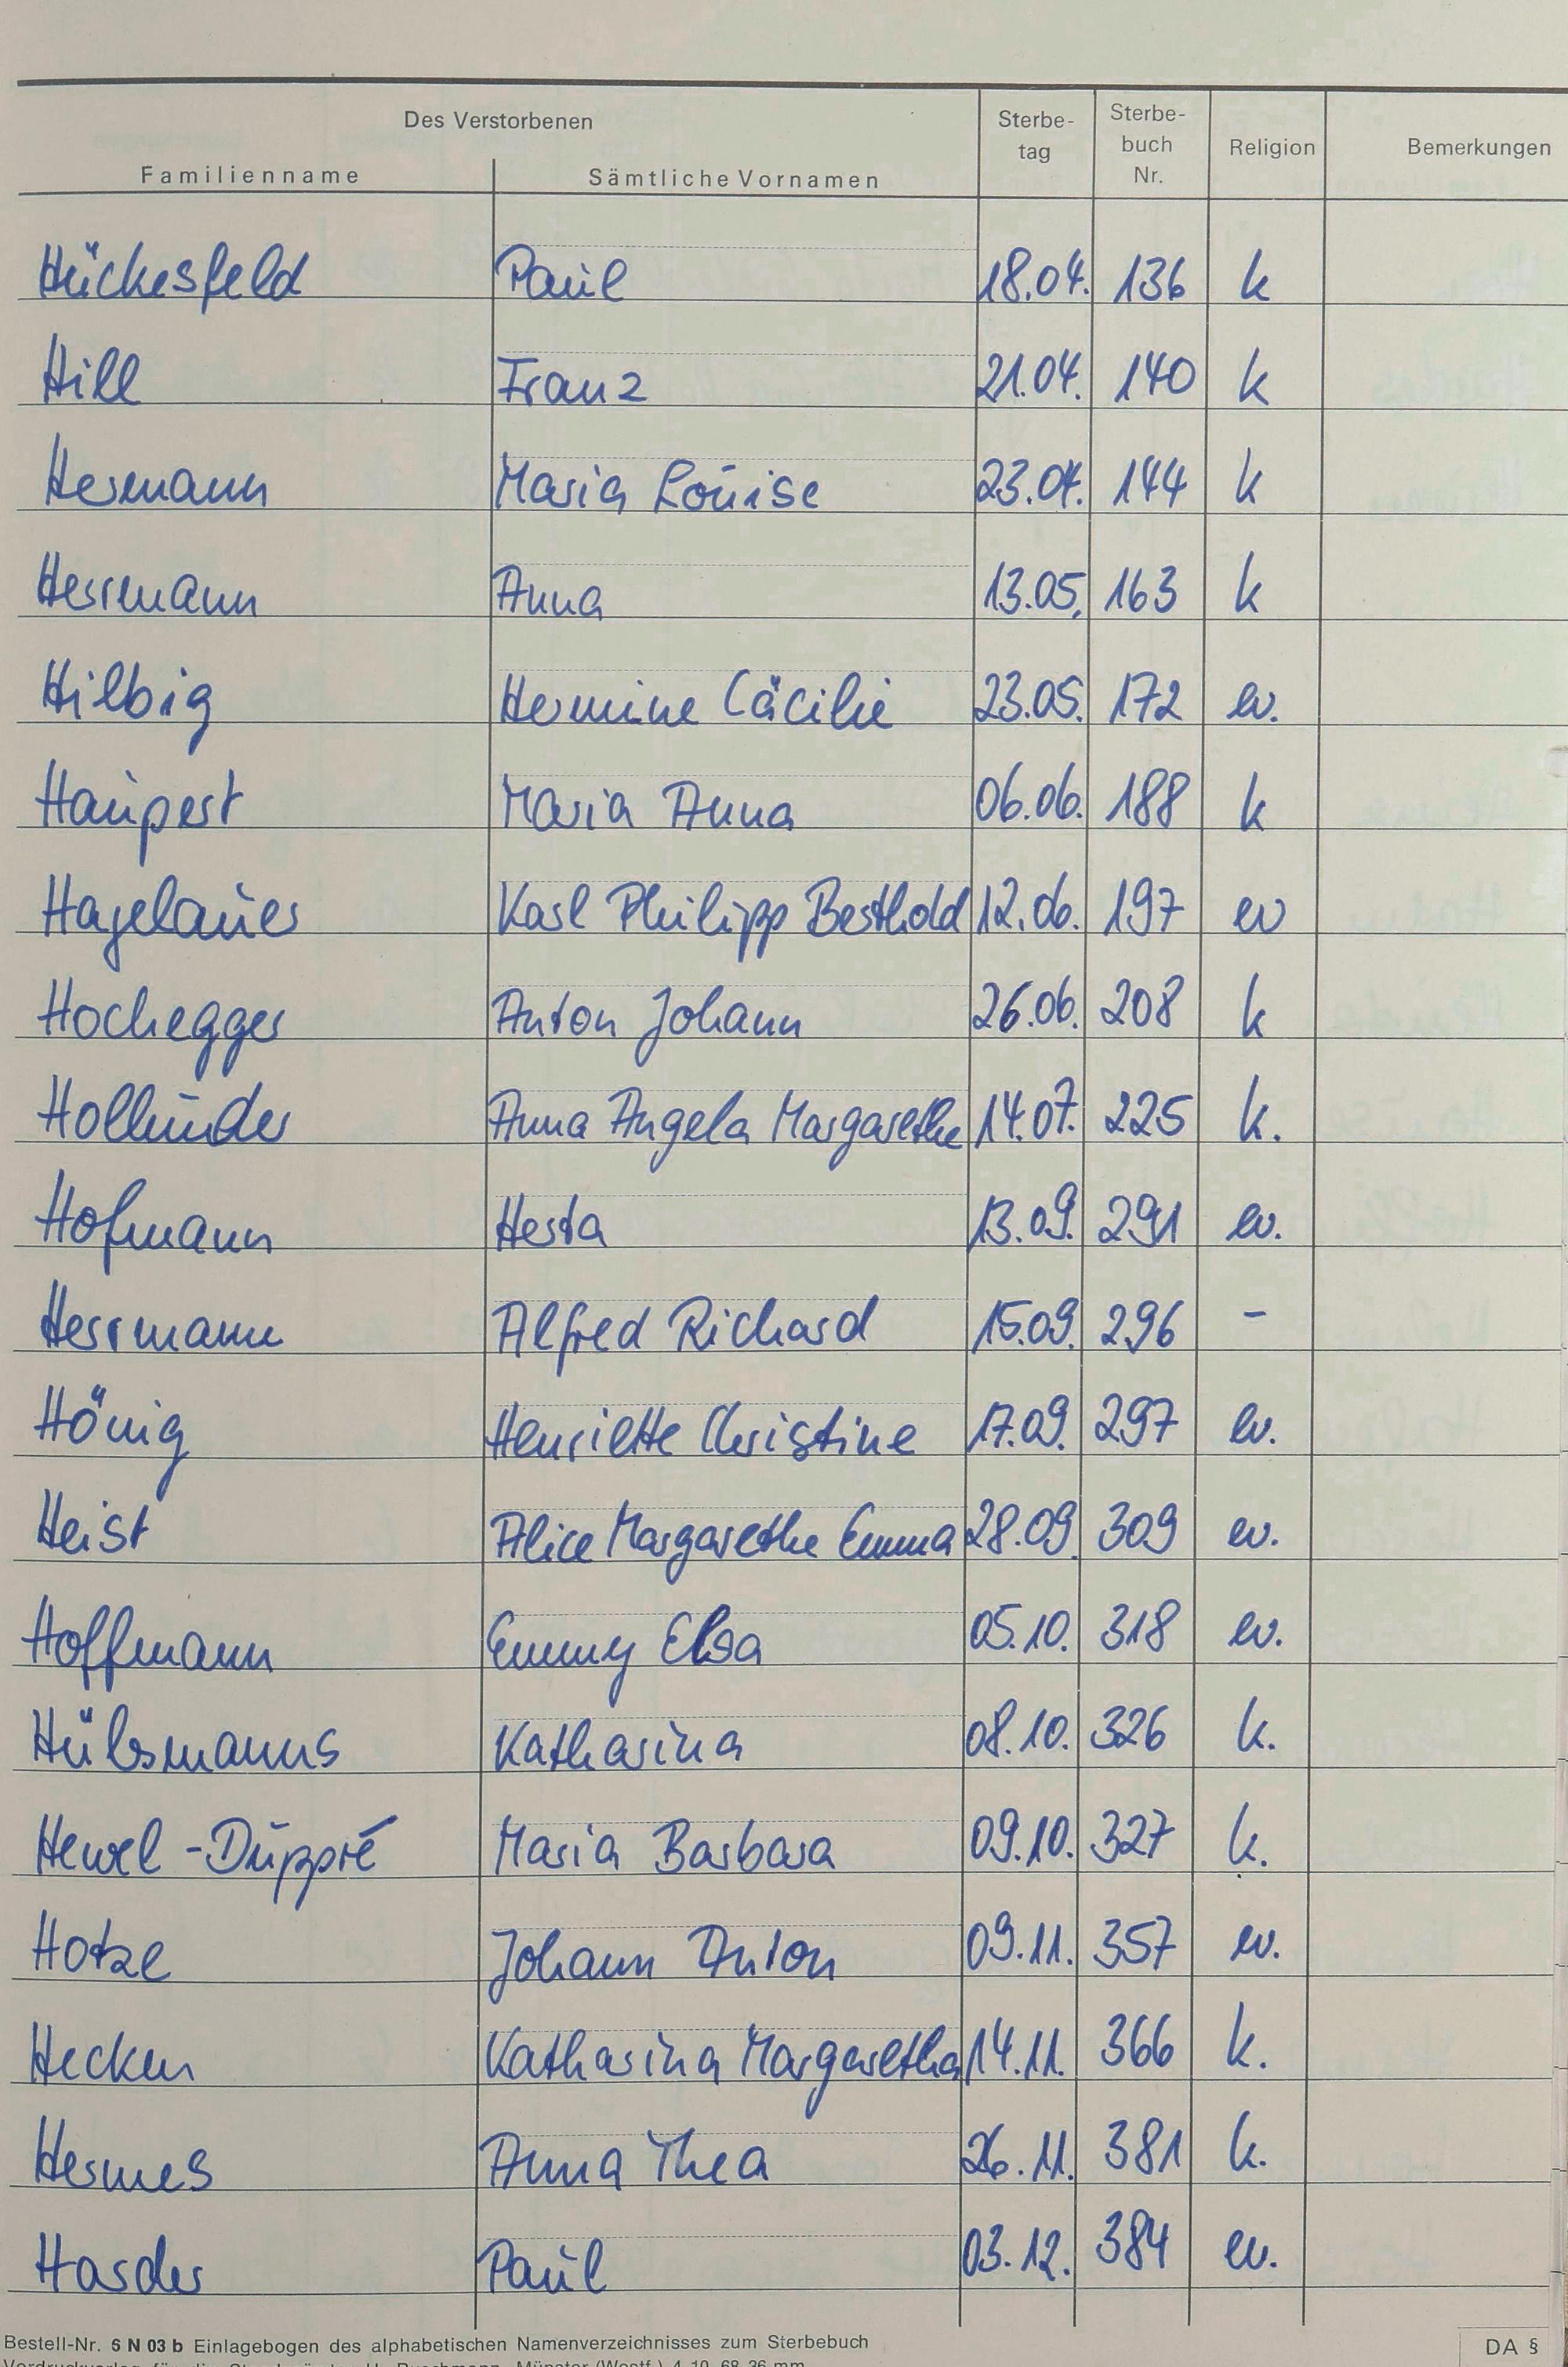 Des Verstorbenen
Familienname Sämtliche Vornamen Sterbe-tag Sterbe-buch Nr. Religion Bemerkungen
Hückesfeld Paul 18.04. 136 k
Hill Franz 21.04. 140 k
Hermann Maria Louise 23.04. 144 k
Herrmann Anna 13.05. 163 k
Hilbig Hermine Cäcilie 23.05. 172 ev.
Haupert Maria Anna 06.06. 188 k
Hagelauer Karl Philipp Berthold 12.06. 197 ev
Hochegger Anton Johann 26.06. 208 k
Hollunder Anna Angela Margarethe 14.07. 225 k.
Hofmann Herta 13.09. 291 ev.
Herrmann Alfred Richard 15.09. 296 -
Hönig Henriette Christine 17.09. 297 ev.
Heist Alice Margarethe Emma 28.09. 309 ev.
Hoffmann Emmy Elsa 05.10. 318 ev.
Hülsmanns Katharina 08.10. 326 k.
Hewel-Duppré Maria Barbara 09.10. 327 k.
Hotze Johann Anton 09.11. 357 ev.
Hecken Katharina Margaretha 14.11. 366 k.
Hermes Anna Thea 26.11. 381 k.
Harder Paul 03.12. 384 ev.
Bestell-Nr. 5 N 03 b Einlagebogen des alphabetischen Namenverzeichnisses zum Sterbebuch DA §